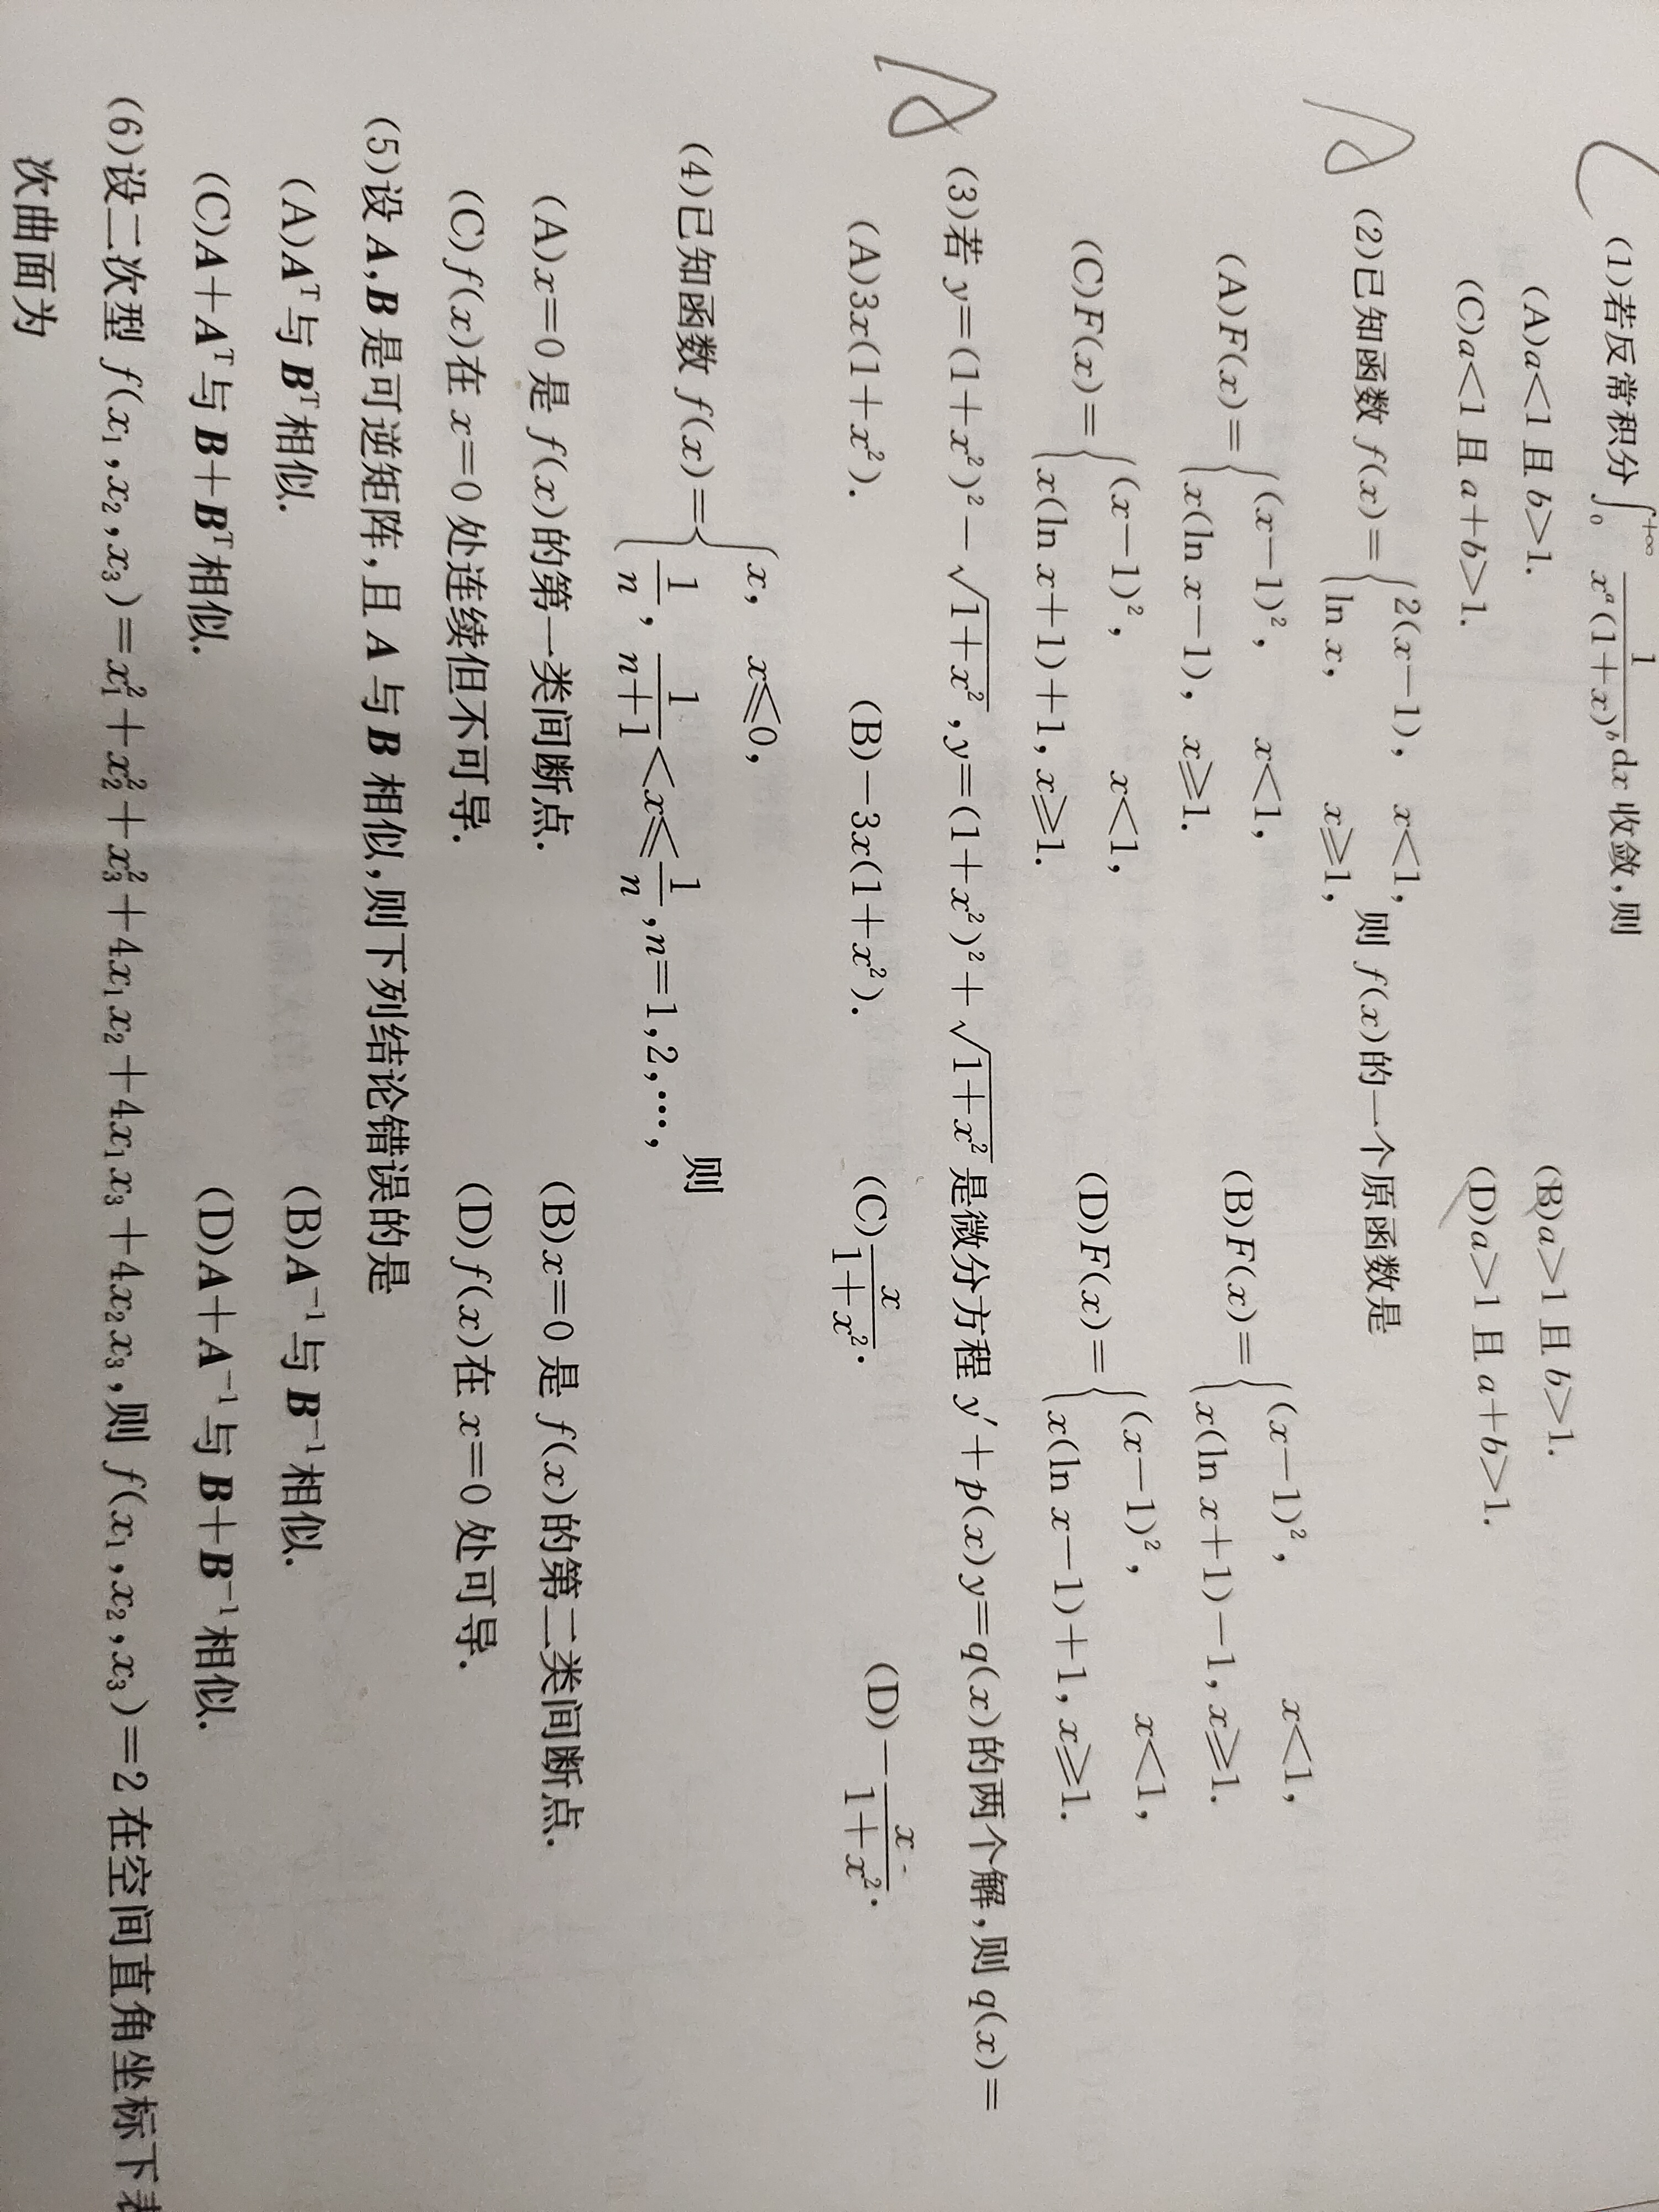 (1)若反常积分∫₀^{+∞} 1/(x^a(1+x)^b) dx 收敛,则
(A)a<1 且 b>1.   (B)a>1 且 b>1.
(C)a<1 且 a+b>1.   (D)a>1 且 a+b>1.
(2)已知函数 f(x)={2(x−1), x<1, ln x, x≥1, 则 f(x)的一个原函数是
(A)F(x)={(x−1)², x<1, x(ln x−1), x≥1.   (B)F(x)={(x−1)², x<1, x(ln x+1)−1, x≥1.
(C)F(x)={(x−1)², x<1, x(ln x+1)+1, x≥1.   (D)F(x)={(x−1)², x<1, x(ln x−1)+1, x≥1.
(3)若 y=(1+x²)²−√(1+x²), y=(1+x²)²+√(1+x²) 是微分方程 y′+p(x)y=q(x)的两个解,则 q(x)=
(A)3x(1+x²).   (B)−3x(1+x²).   (C)x/(1+x²).   (D)−x/(1+x²).
(4)已知函数 f(x)={x, x≤0, 1/n, 1/(n+1)<x≤1/n, n=1,2,…, 则
(A)x=0 是 f(x)的第一类间断点.   (B)x=0 是 f(x)的第二类间断点.
(C)f(x)在 x=0 处连续但不可导.   (D)f(x)在 x=0 处可导.
(5)设 A,B 是可逆矩阵,且 A 与 B 相似,则下列结论错误的是
(A)Aᵀ与 Bᵀ相似.   (B)A⁻¹与 B⁻¹相似.
(C)A+Aᵀ与 B+Bᵀ相似.   (D)A+A⁻¹与 B+B⁻¹相似.
(6)设二次型 f(x₁,x₂,x₃)=x₁²+x₂²+x₃²+4x₁x₂+4x₁x₃+4x₂x₃,则 f(x₁,x₂,x₃)=2 在空间直角坐标下表
次曲面为